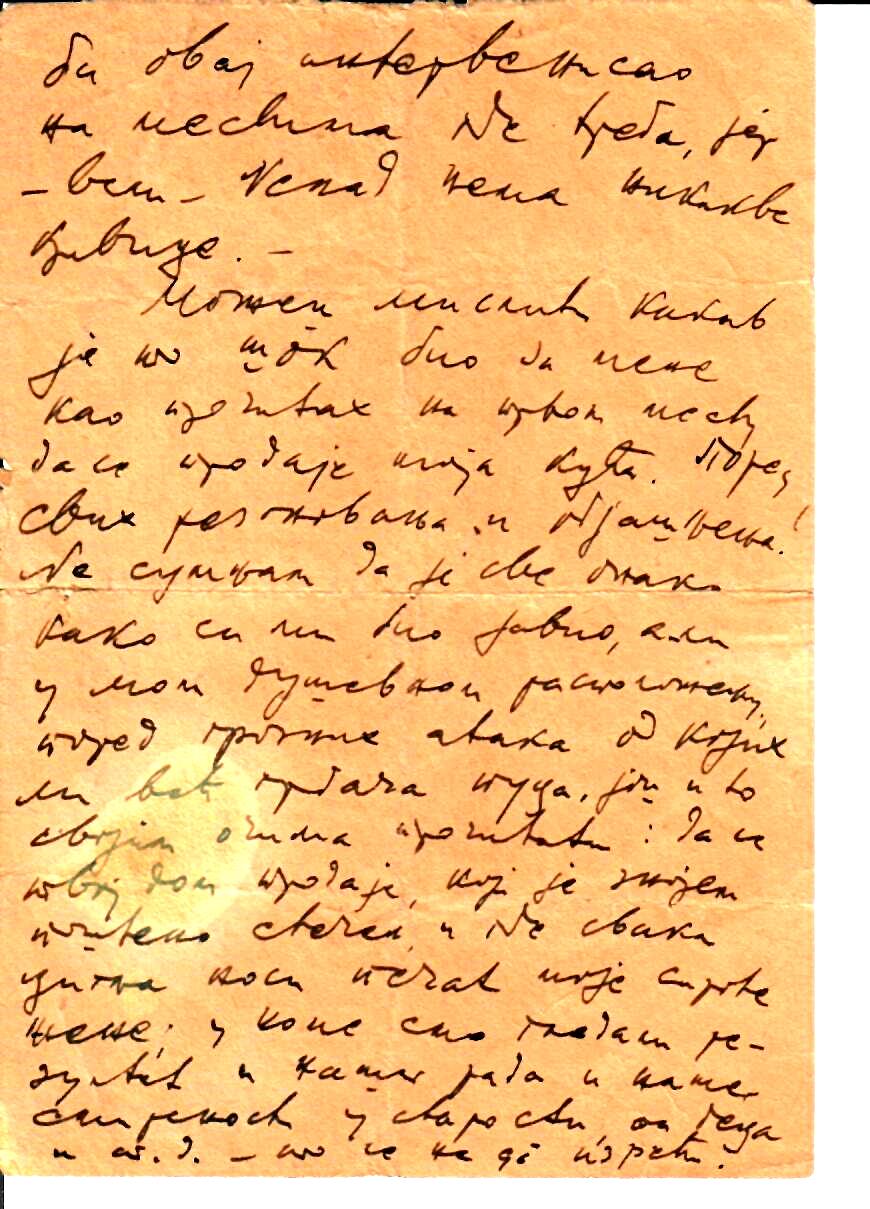 би овај интервенисао
на местима не треба, јер
– вели – Ненад нема никакве
кривице. –
Можеш мислити какав
је то шок био за мене
као прочитах на првом месту
да се продаје моја кућа. Поред
свих резоновања и објашњења!
Не сумњам да је све онако
како си ми био јавио, али
у мом душевном расположењу,
поред грозних атака од којих
ми већ срдачза пуца, још и то
својим очима прочитати: да се
твој дом продаје, који је знојем
поштено стечен, и где свака
цигла носи печат моје сироте
жене; у коме смо гледали ре-
зултат и нашег рада и наше
смирености у старости, од деце
и т. д. – то се не да изрећи!